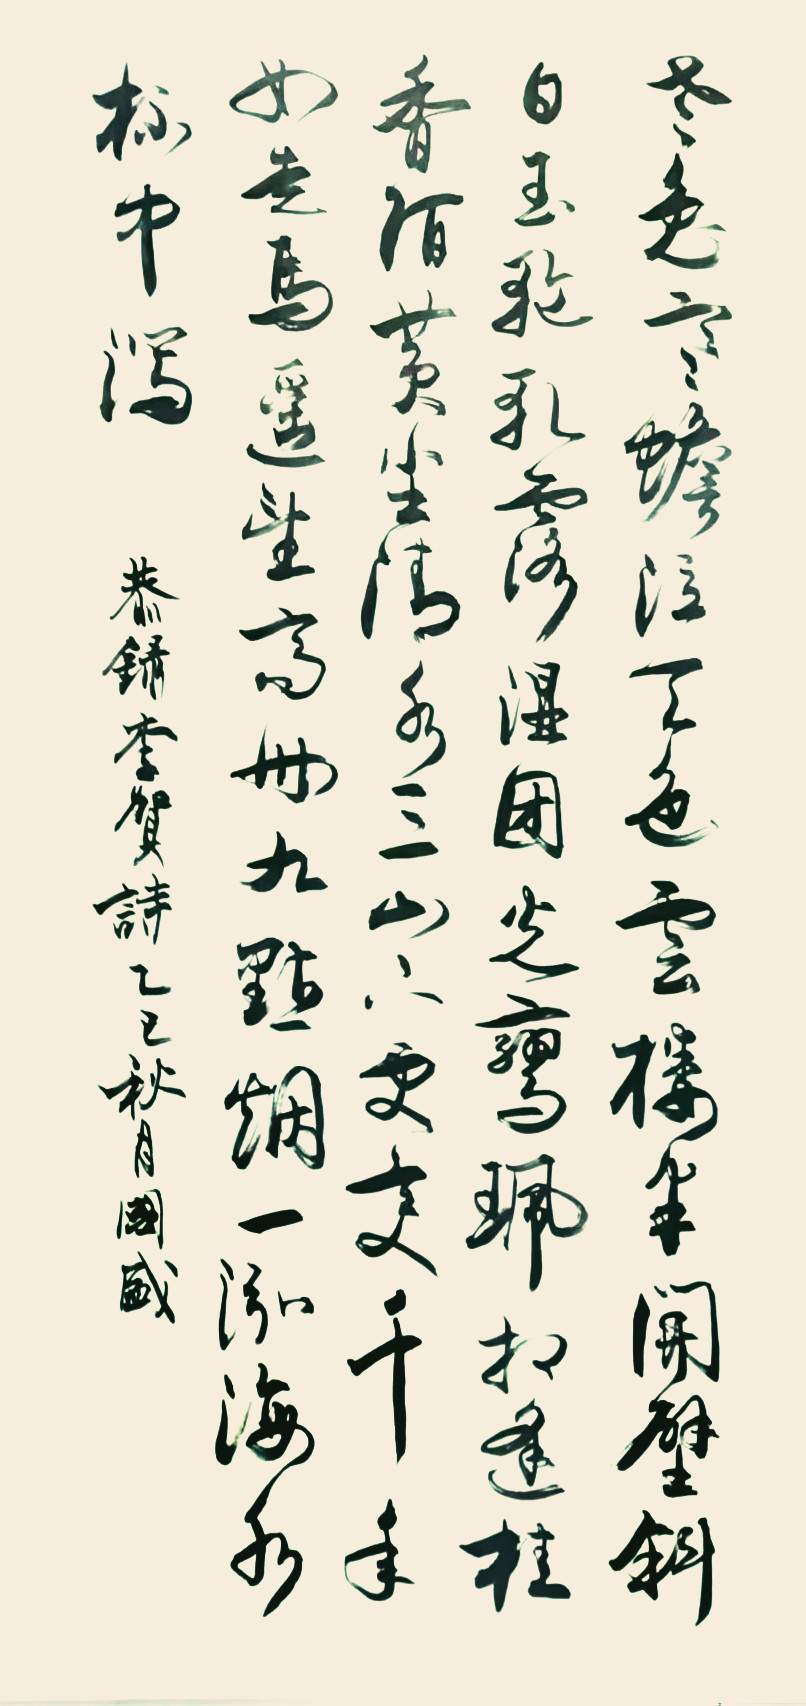 老兔寒蟾泣天色雲樓半開壁斜
白玉輪軋露濕团光鸞珮相逢桂
香陌黄塵清水三山下更変千年
如走馬遥望齊州九點烟一泓海水
杯中瀉
恭録李賀詩乙巳秋月國盛